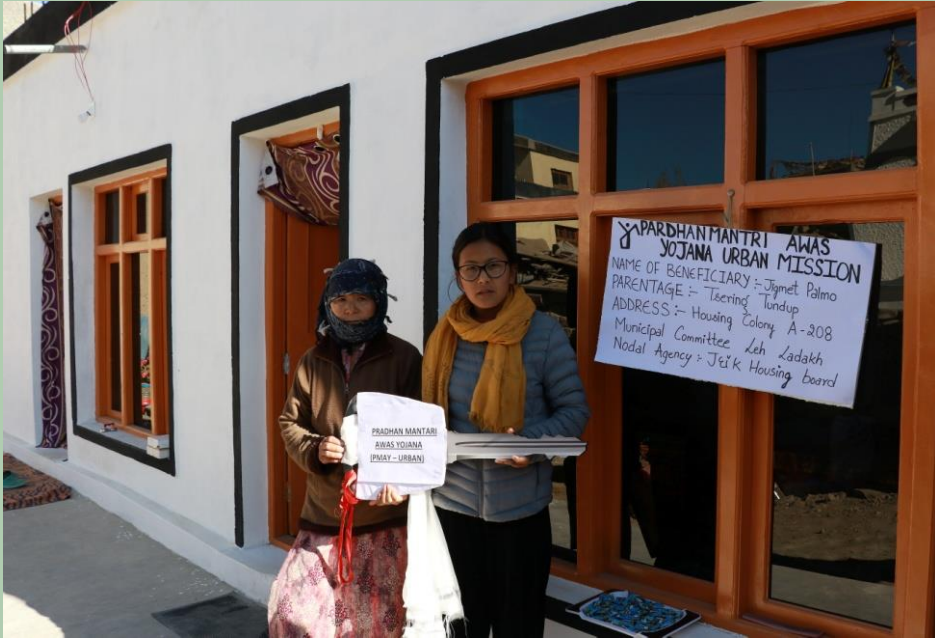 PARDHAN MANTRI AWAS
YOJANA URBAN MISSION
NAME OF BENEFICIARY :- Jigmet Palmo
PARENTAGE :- Tsering Tundup
ADDRESS :- Housing Colony A-208
Municipal Committee Leh Ladakh
Nodal Agency :- J&K Housing board
PRADHAN MANTARI
AWAS YOJANA
(PMAY – URBAN)